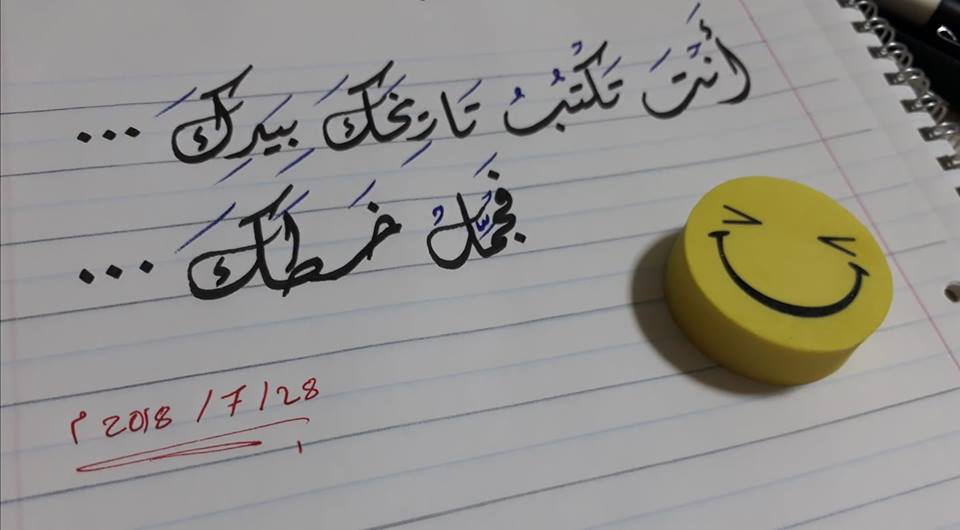 أَنْتَ تَكْتُبُ تَارِيخَكَ بِيَدِكَ ...
فَجَمِّلُ خَطَّكَ ...
28 / 7 / 2018 م